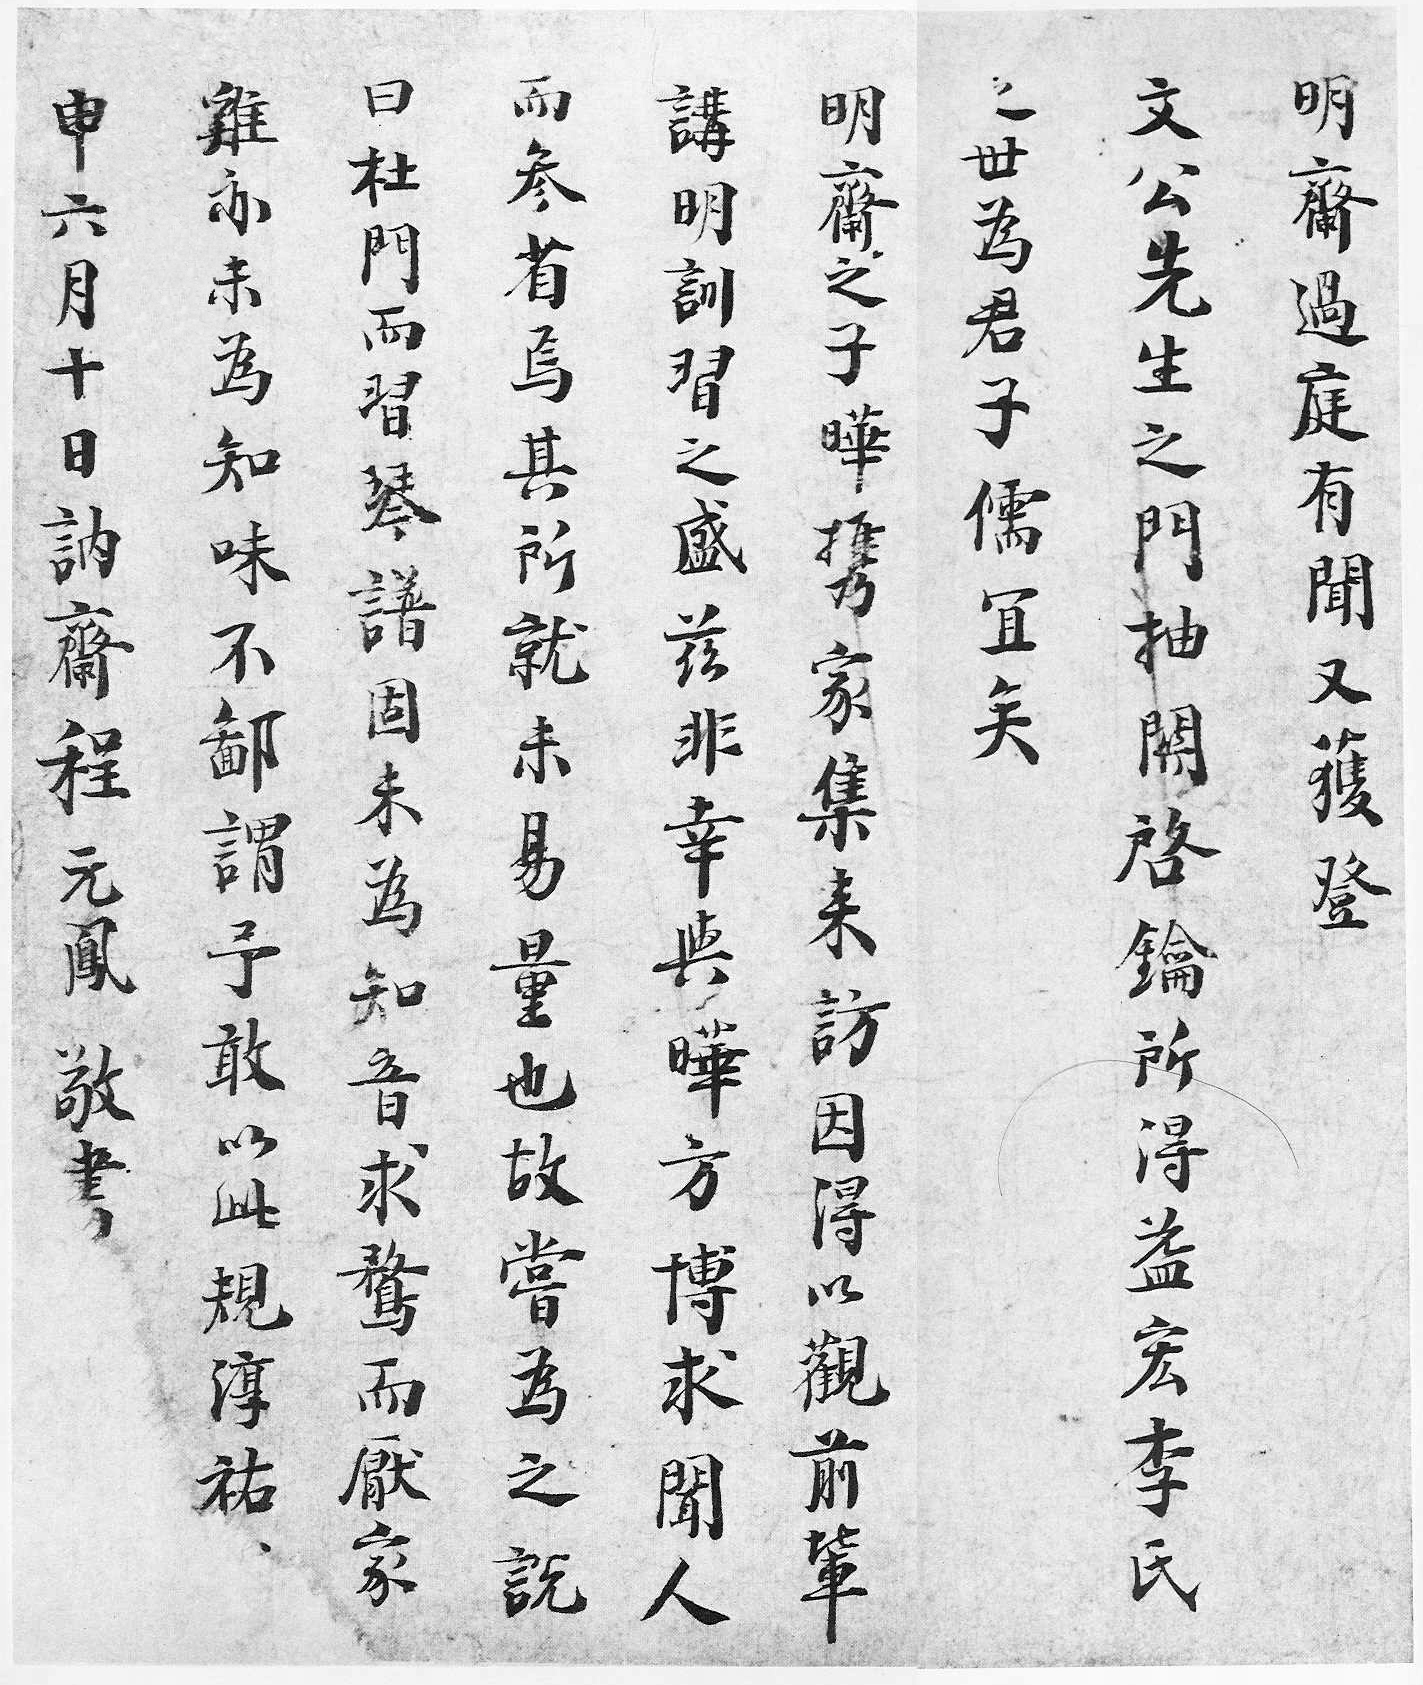 明齋過庭有聞又獲登
文公先生之門抽關啓鑰所得益宏李氏
之世為君子儒冝矣
明齋之子曄携家集来訪因得以觀前輩
講明訓習之盛茲非幸與曄方博求聞人
而叅省焉其所就未易量也故嘗為之説
曰杜門而習琴譜固未為知音求鶩而厭家
雞亦未為知味不鄙謂予敢以此規淳祐
申六月十日訥齋程元鳳敬書